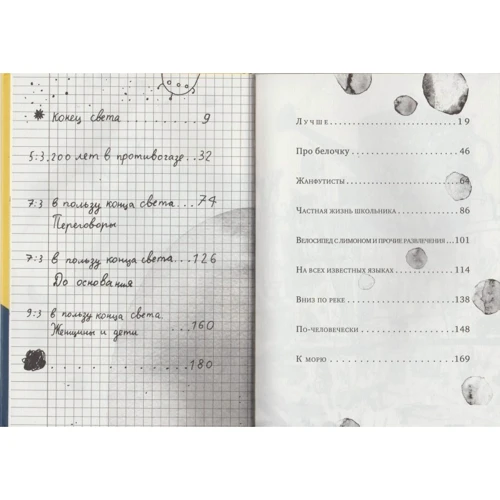 Конец света.........9
5:3.200 лет в противогазе..32
7:3 в пользу конца света...74
Переговоры
7:3 в пользу конца света...126
До основания
9:3 в пользу конца света.
Женщины и дети ...160
..........180
Лучше..................19
Про белочку..................46
Жанфутисты..................64
Частная жизнь школьника..................86
Велосипед с лимоном и прочие развлечения...101
На всех известных языках..................114
Вниз по реке..................138
По-человечески..................148
К морю..................169